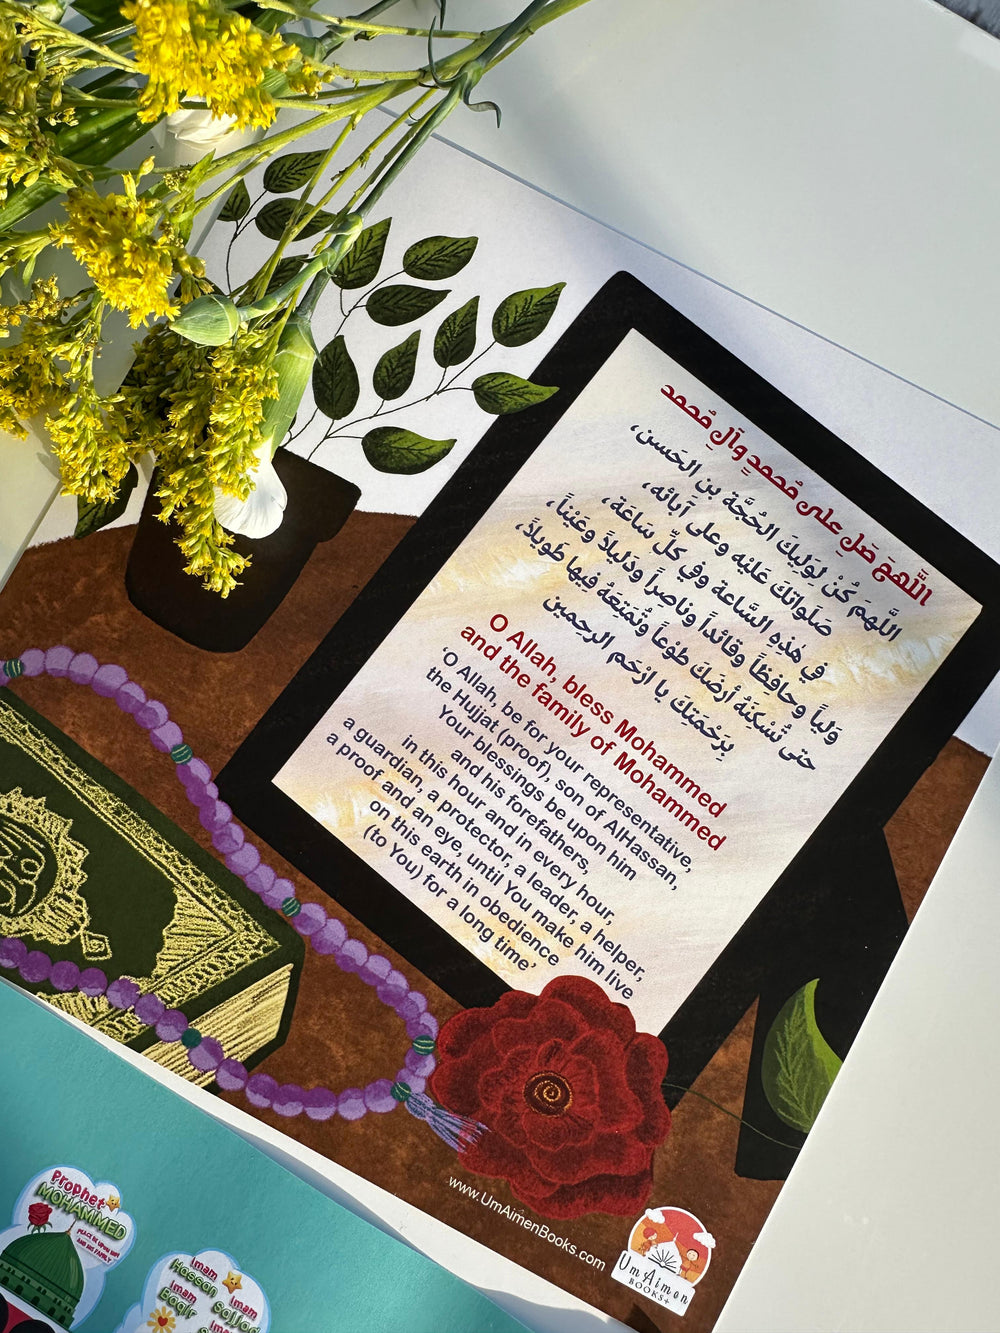 اللَّهمَ صَلِ على مُحمدٍ وآلِ مُحمد
اللَّهمَ كُنْ لوَليكَ الحُجَّة بنِ الحَسن،
صَلَواتكَ عَليْه وعلى آبائه،
في هٰذهِ السَّاعة وفي كلِّ سَاعَة،
وَلياً وحافِظاً وقائداً وناصِراً ودَليلاً وعَيْناً،
حتى تُسْكِنَهُ أرضَكَ طَوْعاً وتُمَتِعَهُ فيها طَويلاً،
بِرَحْمَتِكَ يا ارْحَم الرحِمين
O Allah, bless Mohammed
and the family of Mohammed
‘O Allah, be for your representative,
the Hujjat (proof), son of AlHassan,
Your blessings be upon him
and his forefathers,
in this hour and in every hour,
a guardian, a protector, a leader, a helper,
a proof and an eye, until You make him live
on this earth in obedience
(to You) for a long time’
www.UmAimenBooks.com
Um Aimen
BOOKS+
Prophet
MOHAMMED
PEACE BE UPON HIM
AND HIS FAMILY
Imam
Hassan
Imam
Sajjad
Imam
Baqir